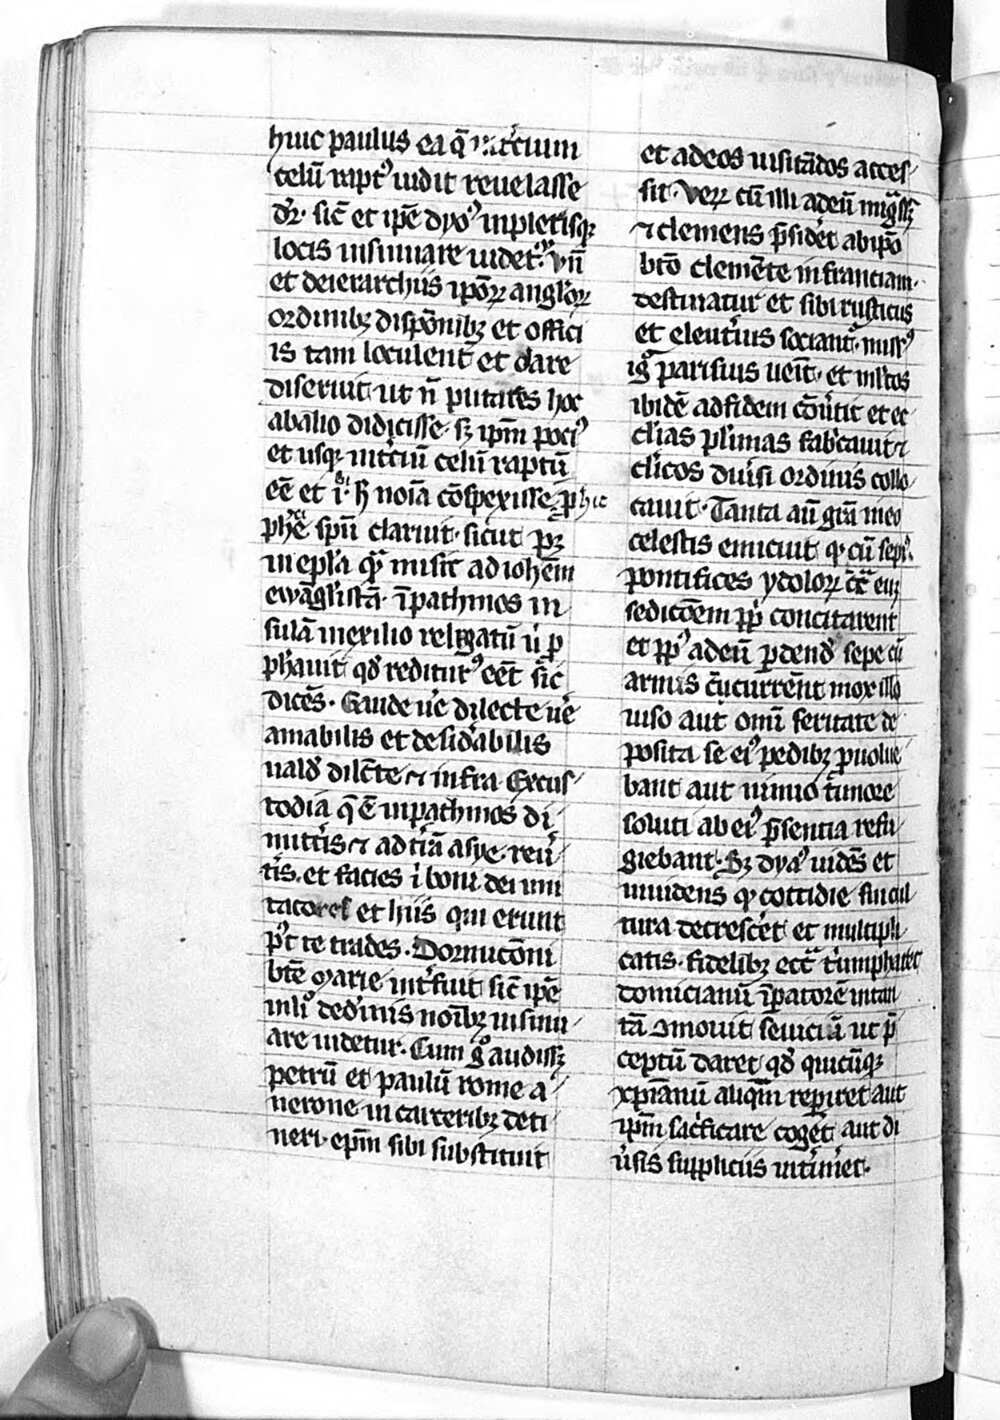 huic paulus ea q̄ in t'cium
celū rapt9 uidit reuelasse
d'r. sic̄ et ip̄e dyo9 in plerisq;
locis insinuare uidet᷑. Vn̄
et de ierarchiis ip̄oꝝ angl'oꝝ
ordinibꝫ dispōnibꝫ et offici
is tam loculent et clare
diseruit ut n̄ putares hoc
ab alio didicisse sꝫ ip̄m poci9
et usqꝫ in t'ciū celū raptū
eē et i' h̄ noīa cōspexisse. p̄hic
ph'e sp̄u claruit sicut pꝫ
in ep̄la qᷓ misit ad ioh'em
ewāgl'istā ī pathmos in
sulā in exilio relegatū u' p̄
ph'auit qd' reditur9 eēt sic̄
dicēs. Gaude ue' dilecte ue'
amabilis et desid'abilis
uald' dil'cte ⁊ infra Ex cus
todia q̄ ē in pathmos di
mitt'is ⁊ ad t'rā asye reu'
t'is. et facies i' boni dei imi
tacores et hiis qui erunt
p9t te trades. Dormicōni
btē marie int'fuit sic̄ ip̄e
in li9 de diuīs noībꝫ insinu
are uidetur. Cum g° audissꝫ
petrū et paulū rome a
nerone in carceribꝫ deti
neri. ep̄m sibi substituit
et ad eos uisitādos acces
sit. Veꝝ cū illi ad deū migᷓssꝫ
⁊ clemens p̄sid'et ab ip̄o
btō clemēte in franciam
destinatur et sibi rusticus
et eleuth'ius sociant᷑. miss9
ig᷑ parisius ueīt. et m'ltos
ibidē ad fidem cōu'tit et ec
cl'ias pl'imas fab'cauit ⁊
cl'icos diu'si ordinis collo
cauit. Tanta au' grā in eo
celestis emicuit ꝙ cū sepi9
pontifices ydoloꝝ 9tᷓ eū
sedicōem pp̄l'i concitarent
et pp̄l'9 ad eū p̄dend' sepe cū
armis 9currēnt mox illo
uiso aut omi' feritate de
posita se ei9 pedibꝫ p̄uolue
bant aut nimio timore
soluti ab ei9 p̄sentia refu
giebant. Sꝫ dyabol9 uidēs et
inuidens ꝙ cottidie sui cul
tura decrescēt et multipli
catis fidelibꝫ ecc'a t'umpharet
domicianū īpatorē in tan
tā 9mouit seuiciā ut p̄
ceptū daret qd' quicūqꝫ
xp̄ianū aliquē reperiret aut
ip̄m sac'ficare cogēt aut di
u'sis suppliciis int'imet.